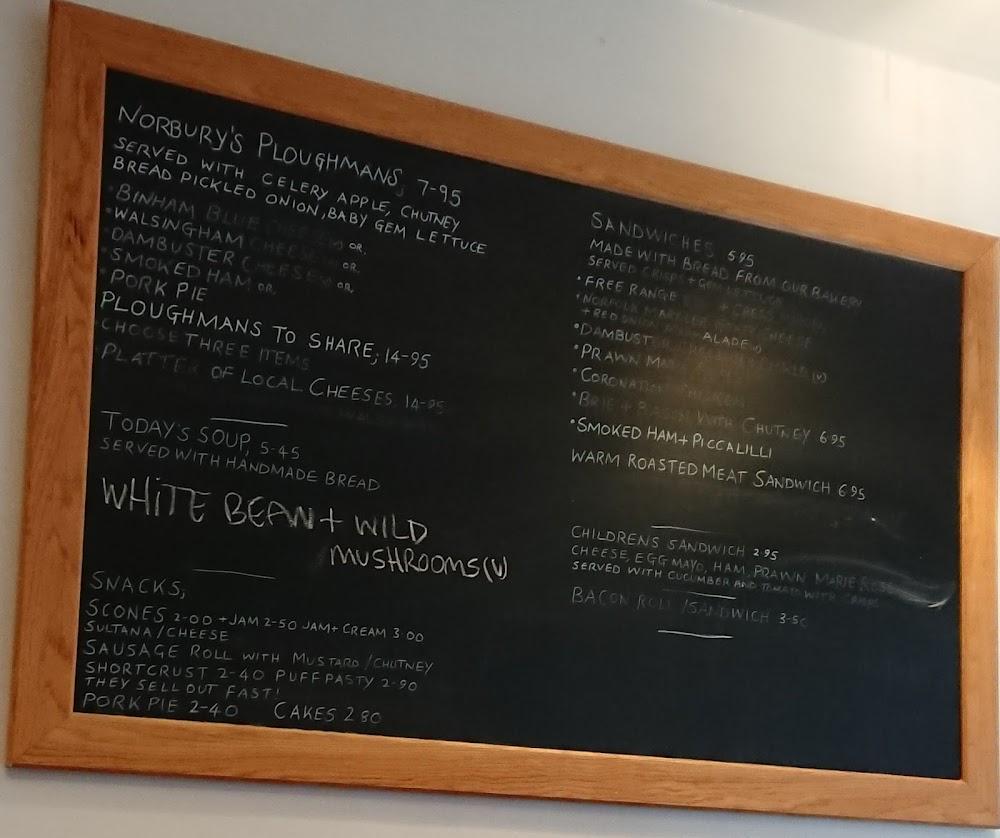 NORBURY'S PLOUGHMANS, 7-95
SERVED WITH CELERY APPLE, CHUTNEY
BREAD PICKLED ONION, BABY GEM LETTUCE
•BINHAM BLUE CHEESE (V) OR,
•WALSINGHAM CHEESE (V) OR,
•DAMBUSTER CHEESE (V) OR,
•SMOKED HAM OR,
•PORK PIE
PLOUGHMANS TO SHARE; 14-95
CHOOSE THREE ITEMS
PLATTER OF LOCAL CHEESES. 14-95
TODAY'S SOUP, 5-45
SERVED WITH HANDMADE BREAD
WHITE BEAN + WILD
MUSHROOMS (V)
SNACKS;
SCONES 2-00 +JAM 2-50 JAM+ CREAM 3.00
SULTANA / CHEESE
SAUSAGE ROLL WITH MUSTARD / CHUTNEY
SHORTCRUST 2-40 PUFF PASTY 2-90
THEY SELL OUT FAST!
PORK PIE 2-40 CAKES 2 80
SANDWICHES 6 95
MADE WITH BREAD FROM OUR BAKERY
SERVED CRISPS + GEM LETTUCE
•FREE RANGE + CRESS
•NORFOLK CHEESE
+ RED ALADE (V)
•DAMBUSTER (V)
•PRAWN
•CORONATION CHICKEN
•BRIE + BACON WITH CHUTNEY 6 95
•SMOKED HAM + PICCALILLI
WARM ROASTED MEAT SANDWICH 6 95
CHILDRENS SANDWICH 2 95
CHEESE, EGG MAYO, HAM, PRAWN MARIE ROSE
SERVED WITH CUCUMBER AND TOMATO WITH CRISPS
BACON ROLL / SANDWICH 3-50